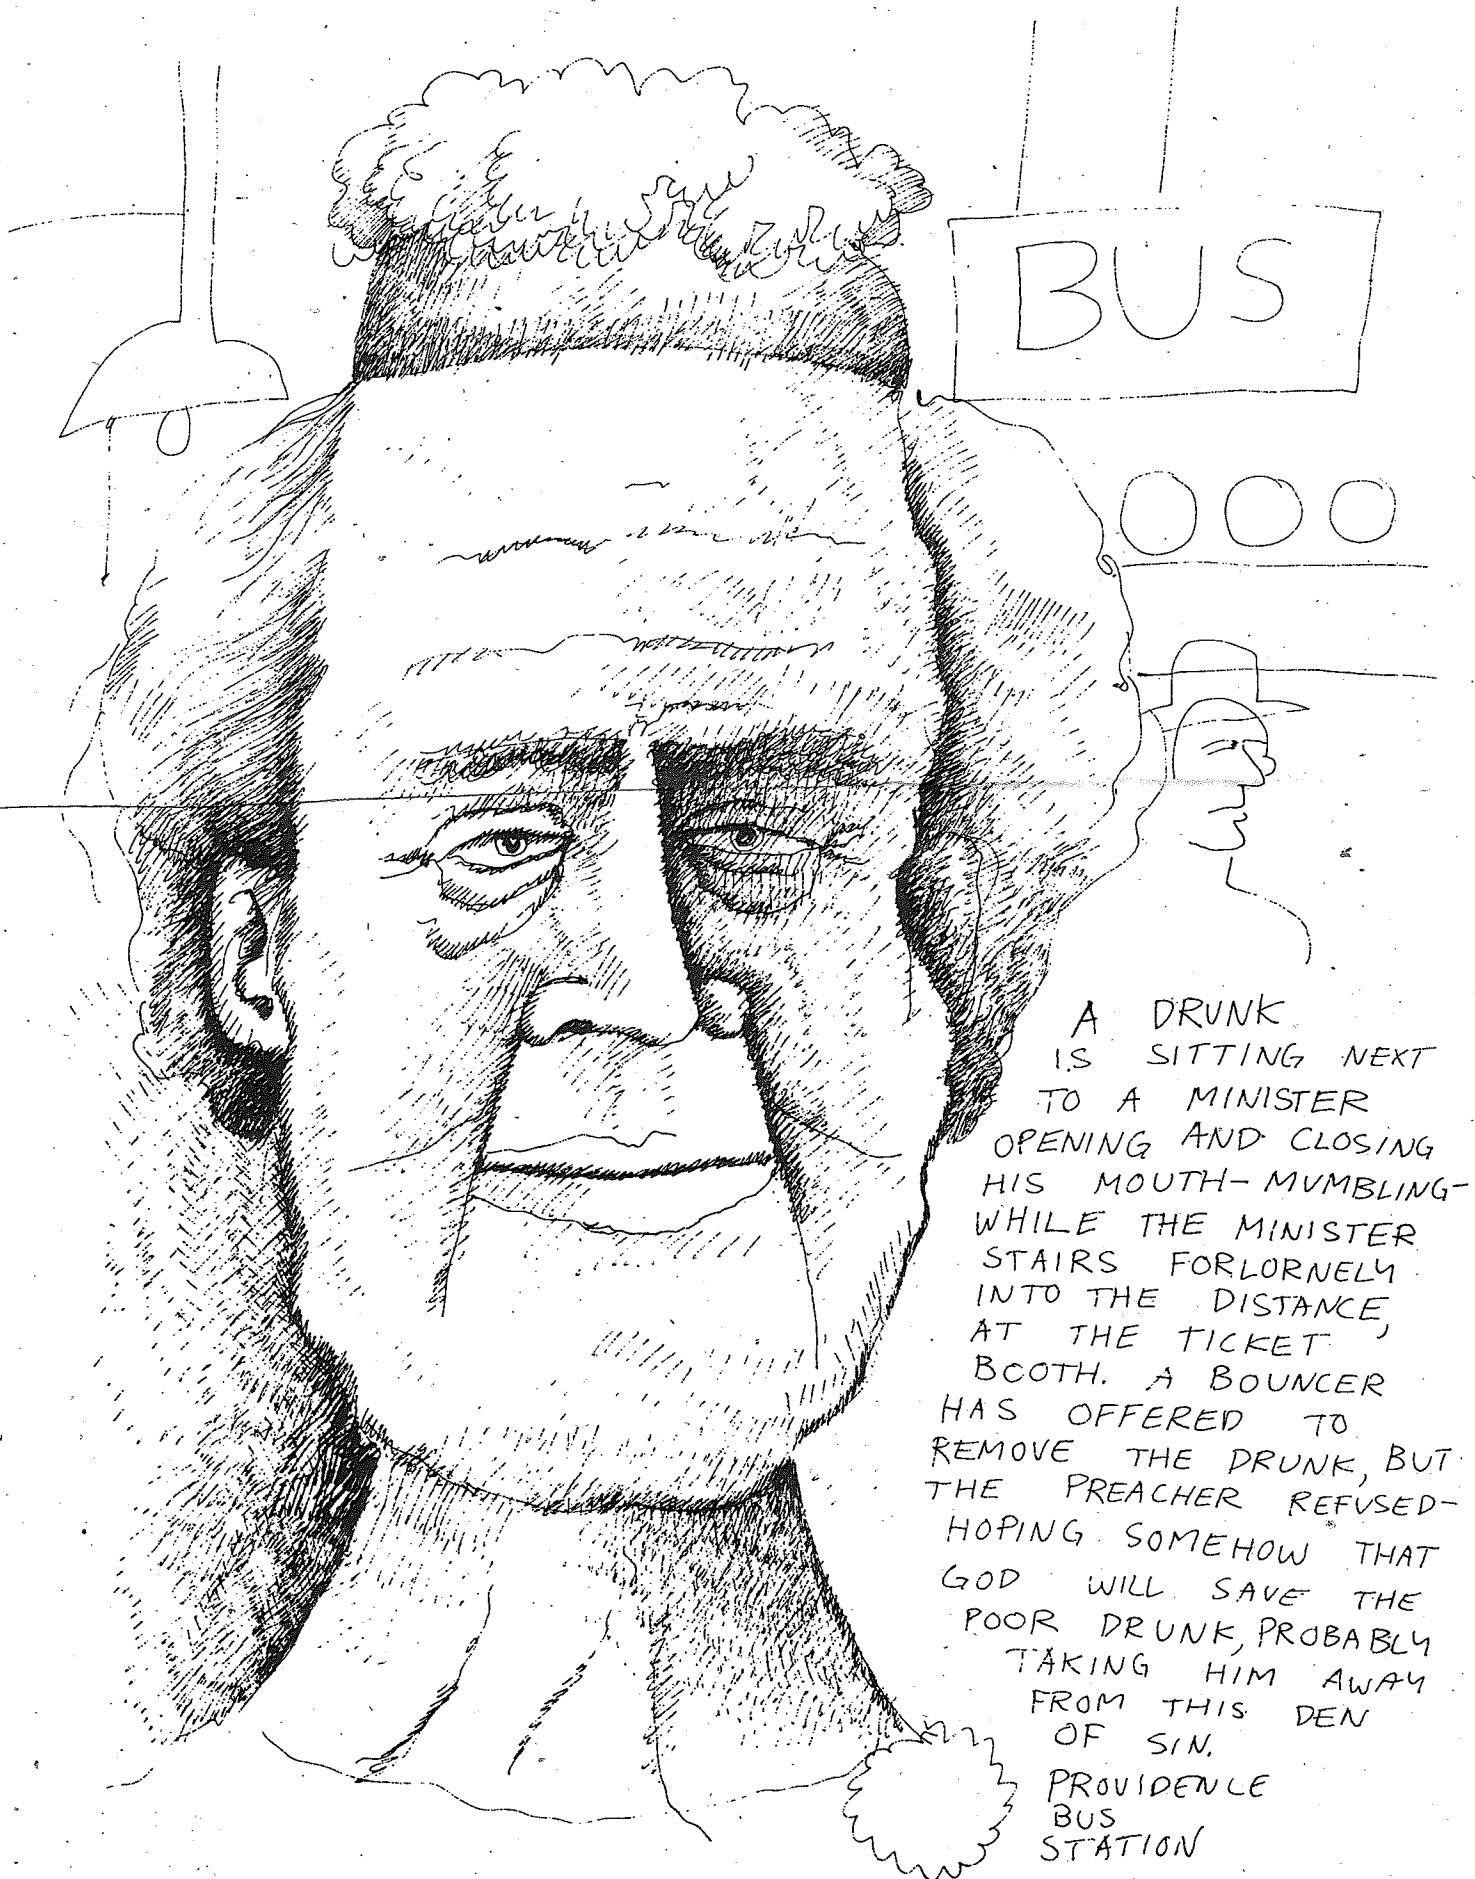 BUS
A DRUNK
IS SITTING NEXT
TO A MINISTER
OPENING AND CLOSING
HIS MOUTH-MUMBLING-
WHILE THE MINISTER
STAIRS FORLORNELY
INTO THE DISTANCE,
AT THE TICKET
BOOTH. A BOUNCER
HAS OFFERED TO
REMOVE THE DRUNK, BUT
THE PREACHER REFUSED-
HOPING SOMEHOW THAT
GOD WILL SAVE THE
POOR DRUNK, PROBABLY
TAKING HIM AWAY
FROM THIS DEN
OF SIN.
PROVIDENCE
BUS
STATION